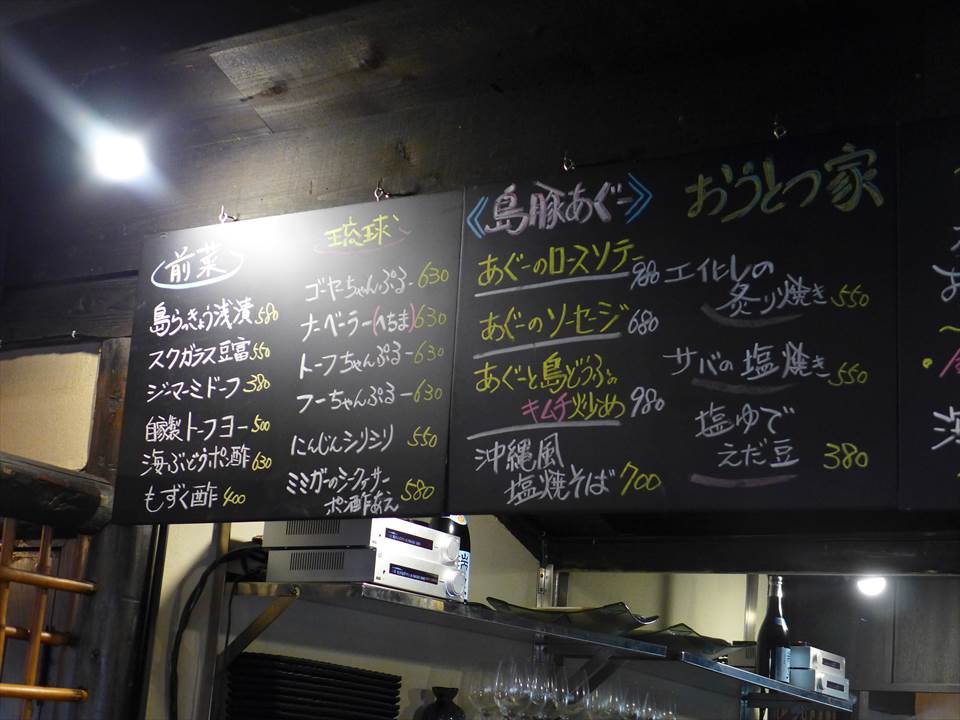 前菜
島らっきょう浅漬 580
スクガラス豆富 550
ジーマーミドーフ 380
自家製トーフヨー 500
海ぶどうポン酢 630
もずく酢 400
琉球
ゴーヤちゃんぷるー 630
ナーベーラー(へちま) 630
トーフちゃんぷるー 630
フーちゃんぷるー 630
にんじんシリシリ 550
ミミガーのシークァーサー
ポン酢あえ 580
《島豚あぐー》
あぐーのロースソテー 980
あぐーのソーセージ 680
あぐーと島どうふの
キムチ炒め 980
沖縄風
塩焼そば 700
おうとつ家
エイヒレの
炙り焼き 550
サバの塩焼き 550
塩ゆで
えだ豆 380